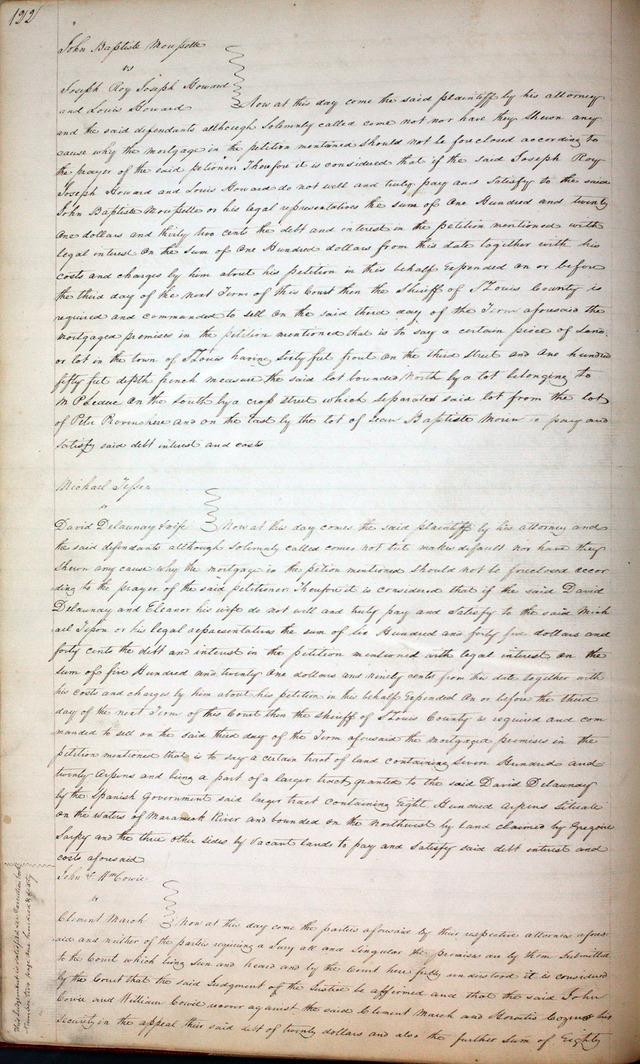 122
John Baptiste Moussette
vs
Joseph Roy Joseph Howard
and Louis Howard Now at this day come the said plaintiff by his attorney
and the said defendants although Solemnly called come not nor have they shewn any
cause why the mortgage in the petition mentioned should not be foreclosed according to
the prayer of the said petioner Therefore it is considered that if the said Joseph Roy
Joseph Howard and Louis Howard do not well and truly pay and Satisfy to the said
John Baptiste Moussette or his legal representatives the sum of One Hundred and twenty
One dollars and thirty two cents the debt and interest in the petition mentioned with
legal interest On the Sum of One Hundred dollars from this date together with his
costs and charges by him about his petition in this behalf Expended on or before
the third day of the next Term of this Court then the Sheriff of St Louis County is
required and commanded to sell on the said third day of the Term aforesaid the
mortgaged premises in the petition mentioned that is to say a certain piece of Land
or lot in the town of St Louis having sixty feet front on the third Street and One hundred
fifty feet depth french measure the said lot bounded North by a lot belonging to
M P Leduc On the South by a cross street which separates said lot from the lot
of Peter Provenchere and on the East by the lot of Jean Baptiste to pay and
satisfy said debt interest and costs
Michael Tesson
vs
David Delaunay & wife Now at this day comes the said plaintiff by his attorney and
the said defendants although Solemnly called comes not but makes default nor have they
shewn any cause why the mortgage in the petion mentioned should not be foreclosed accor
ding to the prayer of the said petitioner Therefore it is considered that if the said David
Delaunay and Eleanor his wife do not well and truly pay and Satisfy to the said Mich
ael Tesson or his legal representatives the sum of Six Hundred and forty five dollars and
forty cents the debt and interest in the petition mentioned with legal interest on the
sum of five Hundred and twenty One dollars and ninety cents from this date together with
his costs and charges by him about his petition in this behalf Expended On or before the third
day of the next Term of this Court then the sheriff of St Louis County is required and com
manded to sell on the said third day of the Term aforesaid the mortgaged premises in the
petition mentioned that is to say a certain tract of land containing Seven Hundred and
twenty Arpens and being a part of a larger tract granted to the said David Delaunay
by the Spanish Government said larger tract containing Eight Hundred Arpens Situate
on the waters of Maramack River and bounded on the Northwest by Land claimed by Gregoire
Sarpy and the three other sides by Vacant lands to pay and satisfy said debt interest and
costs aforesaid
John & Wm Cowie
vs
Clement March Now at this day come the parties aforesaid by their respective attornies afores
aid and neither of the parties requiring a Jury all and Singular the premises are by them Submitted
to the Court which being Seen and heard and by the Court here fully understood it is considered
by the Court that the said Judgment of the Justice be affirmed and that the said John
Cowie and William Cowie recover against the said Clement March and Horatio Cozens his
Security in the appeal their said debt of twenty dollars and also the further Sum of Eighty
This Judgement is satisfied see Execution book